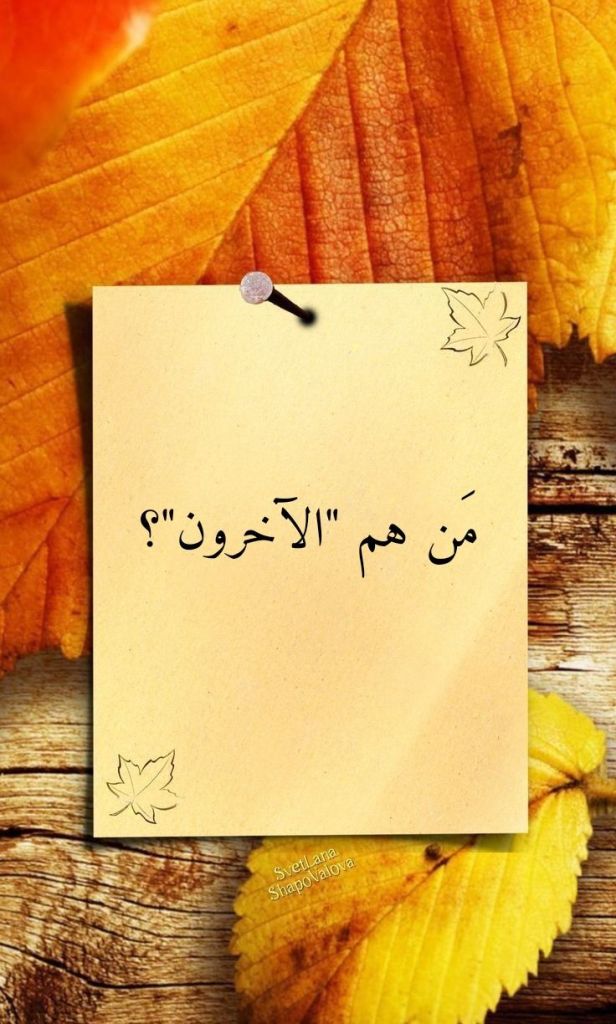 مَن هم "الآخرون"؟
SvetLana
ShapoValova